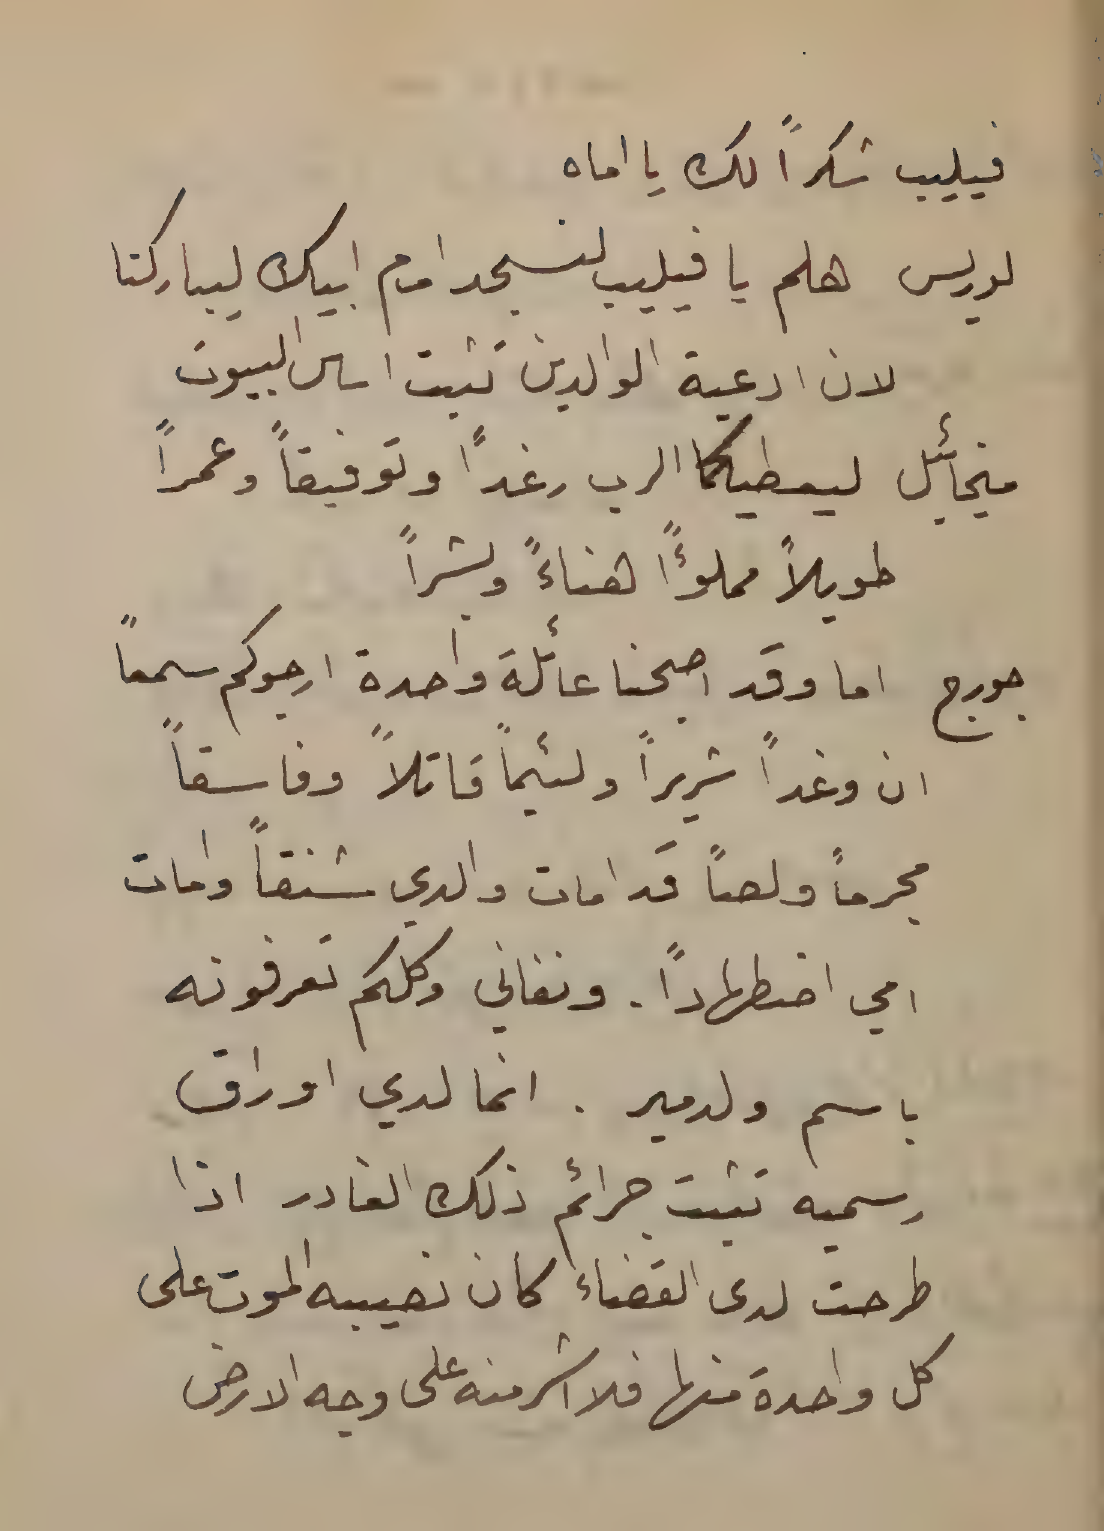 فيليب شكراً لك يا اماه
لوريس هلم يا فيليب لنسجد امام ابيك ليباركنا
لان ادعية الوالدين تثبت اساس البيوت
ميخائيل ليعطيكما الرب رغداً وتوفيقاً وعمراً
طويلاً مملوءًا هناءً وبشراً
جورج اما وقد اصبحنا عائلة واحدة ارجوكم سمعاً
ان وغداً شريراً ولئيماً قاتلاً وفاسقاً
مجرماً ولصاً قد امات والدي شنقاً وامات
امي اضطهاداً . ونفاني وكلكم تعرفونه
باسم ولدمير . انما لدي اوراق
رسميه تثبت جرائم ذلك الغادر اذا
طرحت لدى القضاء كان نصيبه الموت على
كل واحدة منها فلا اشر منه على وجه الارض